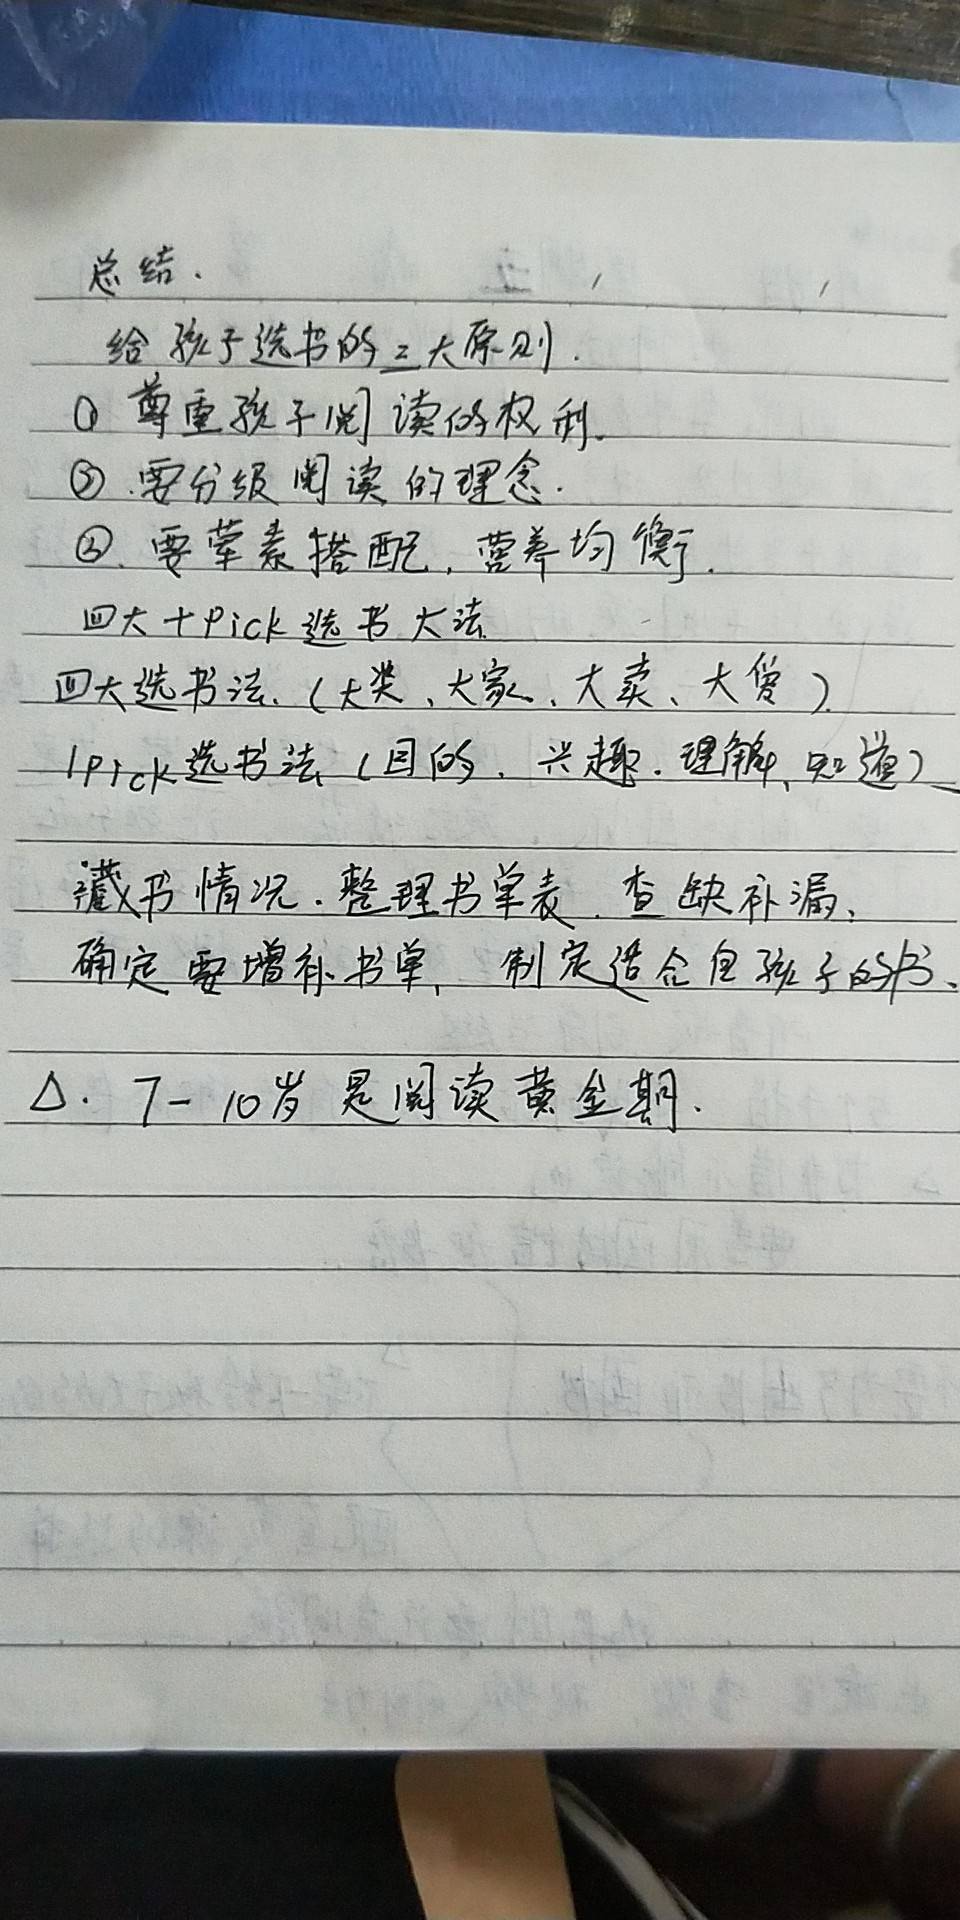 总结.
给孩子选书的三大原则.
① 尊重孩子阅读的权利.
② 要分级阅读的理念.
③ 要荤素搭配, 营养均衡.
四大+Pick选书大法
四大选书法.(大类、大家、大卖、大
IPick选书法(目的、兴趣、理解、知道)
藏书情况.整理书单表.查缺补漏,
确定要增补书单, 制定适合自孩子的书、
△. 7-10岁是阅读黄金期.